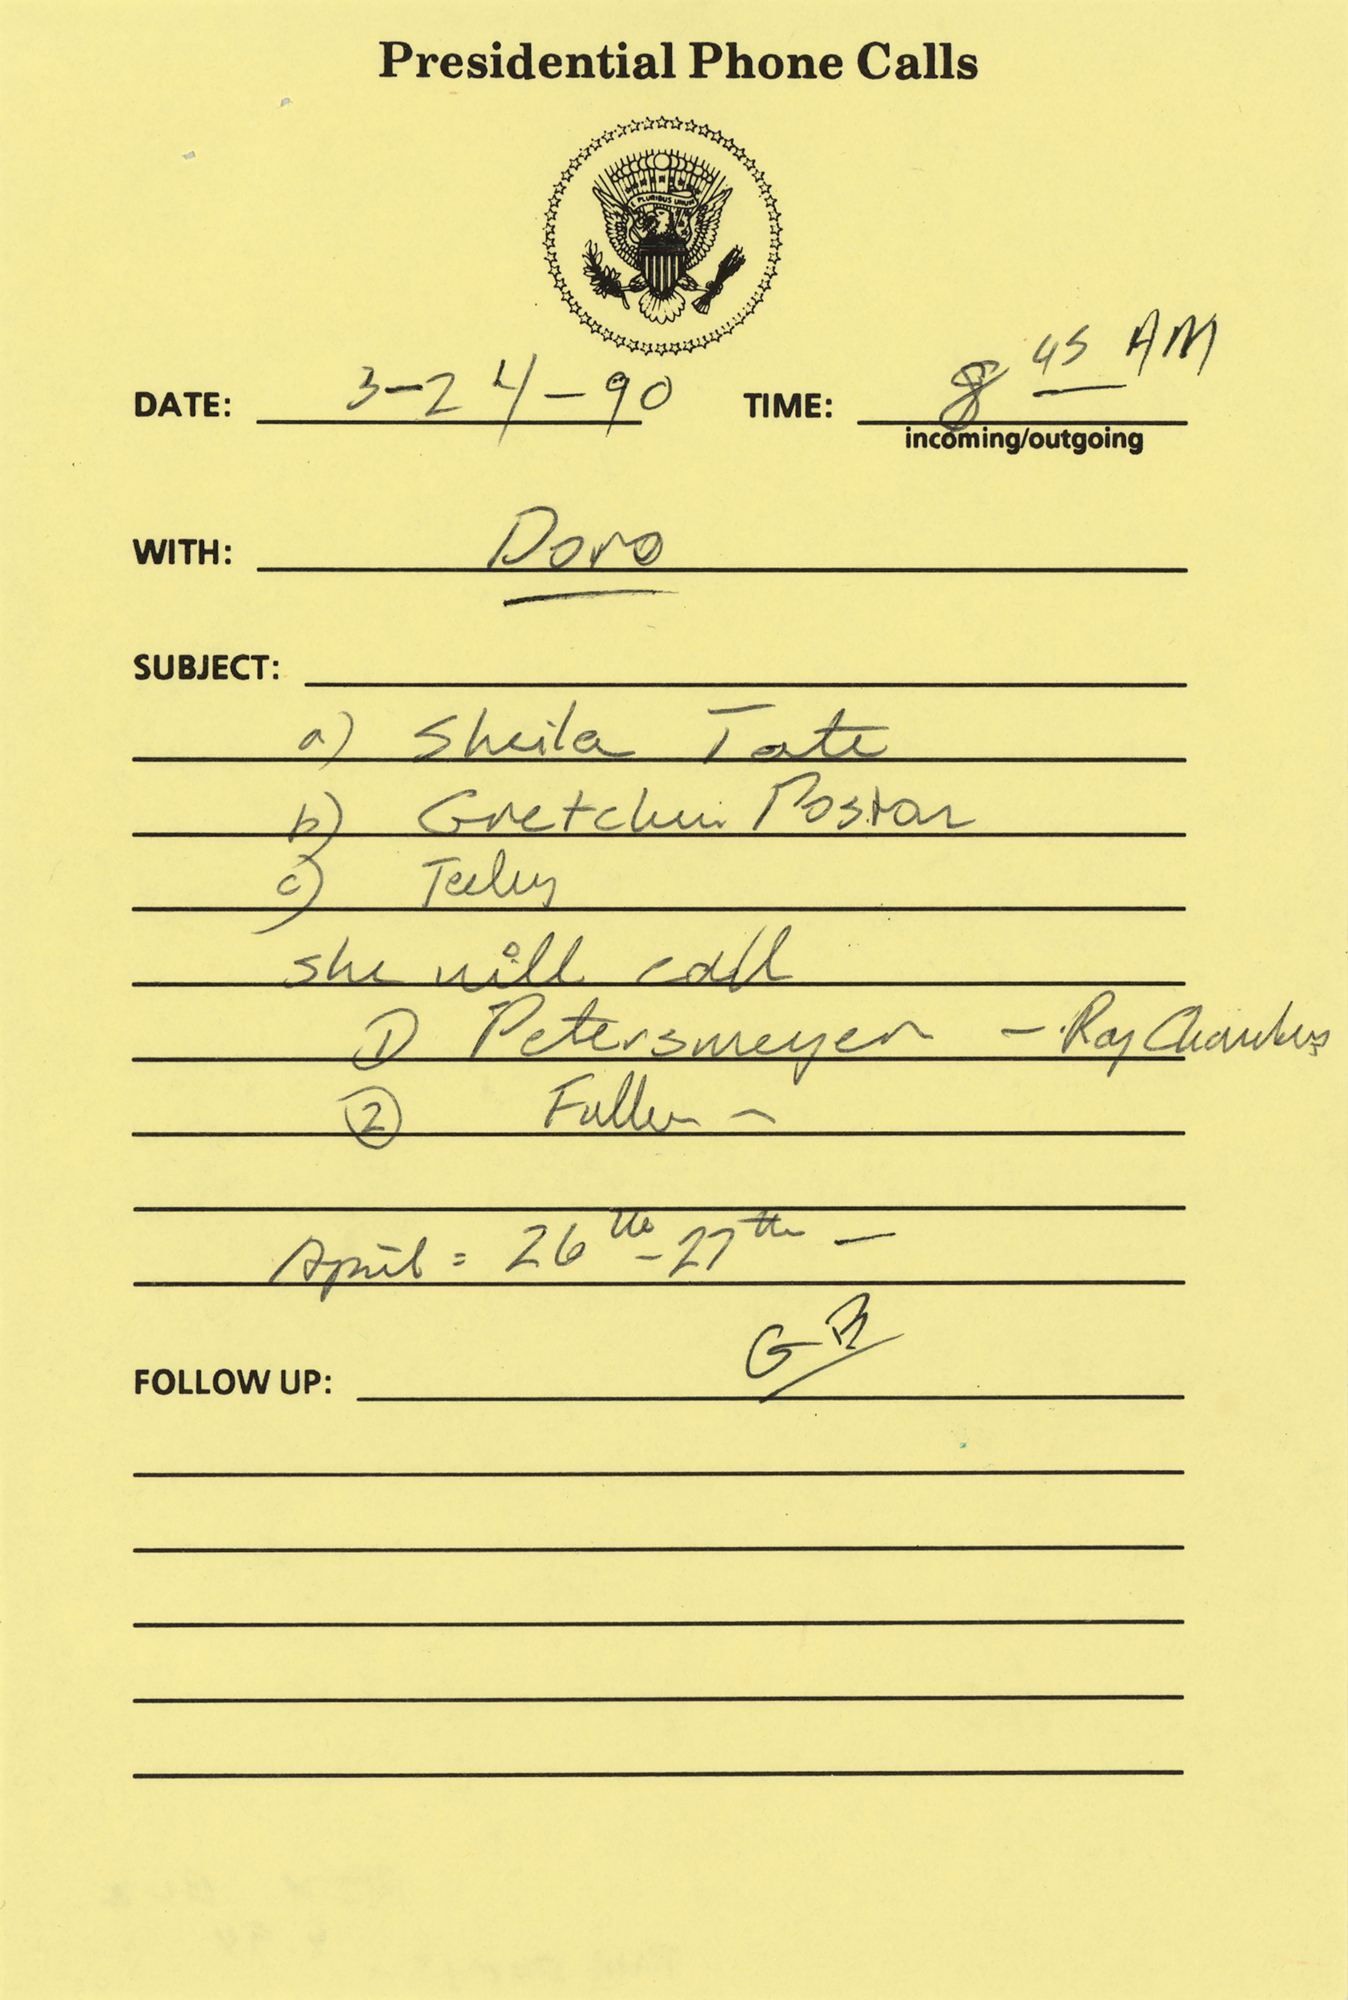 Presidential Phone Calls
E PLURIBUS UNUM
DATE: 3-24-90 TIME: 8 45 AM
incoming/outgoing
WITH: Doro
SUBJECT:
a) Sheila Tate
b) Gretchen Poston
c) Teeley
she will call
1 Petersmeyer — Ray Chambers
2 Fuller —
April = 26th - 27th —
GB
FOLLOW UP: